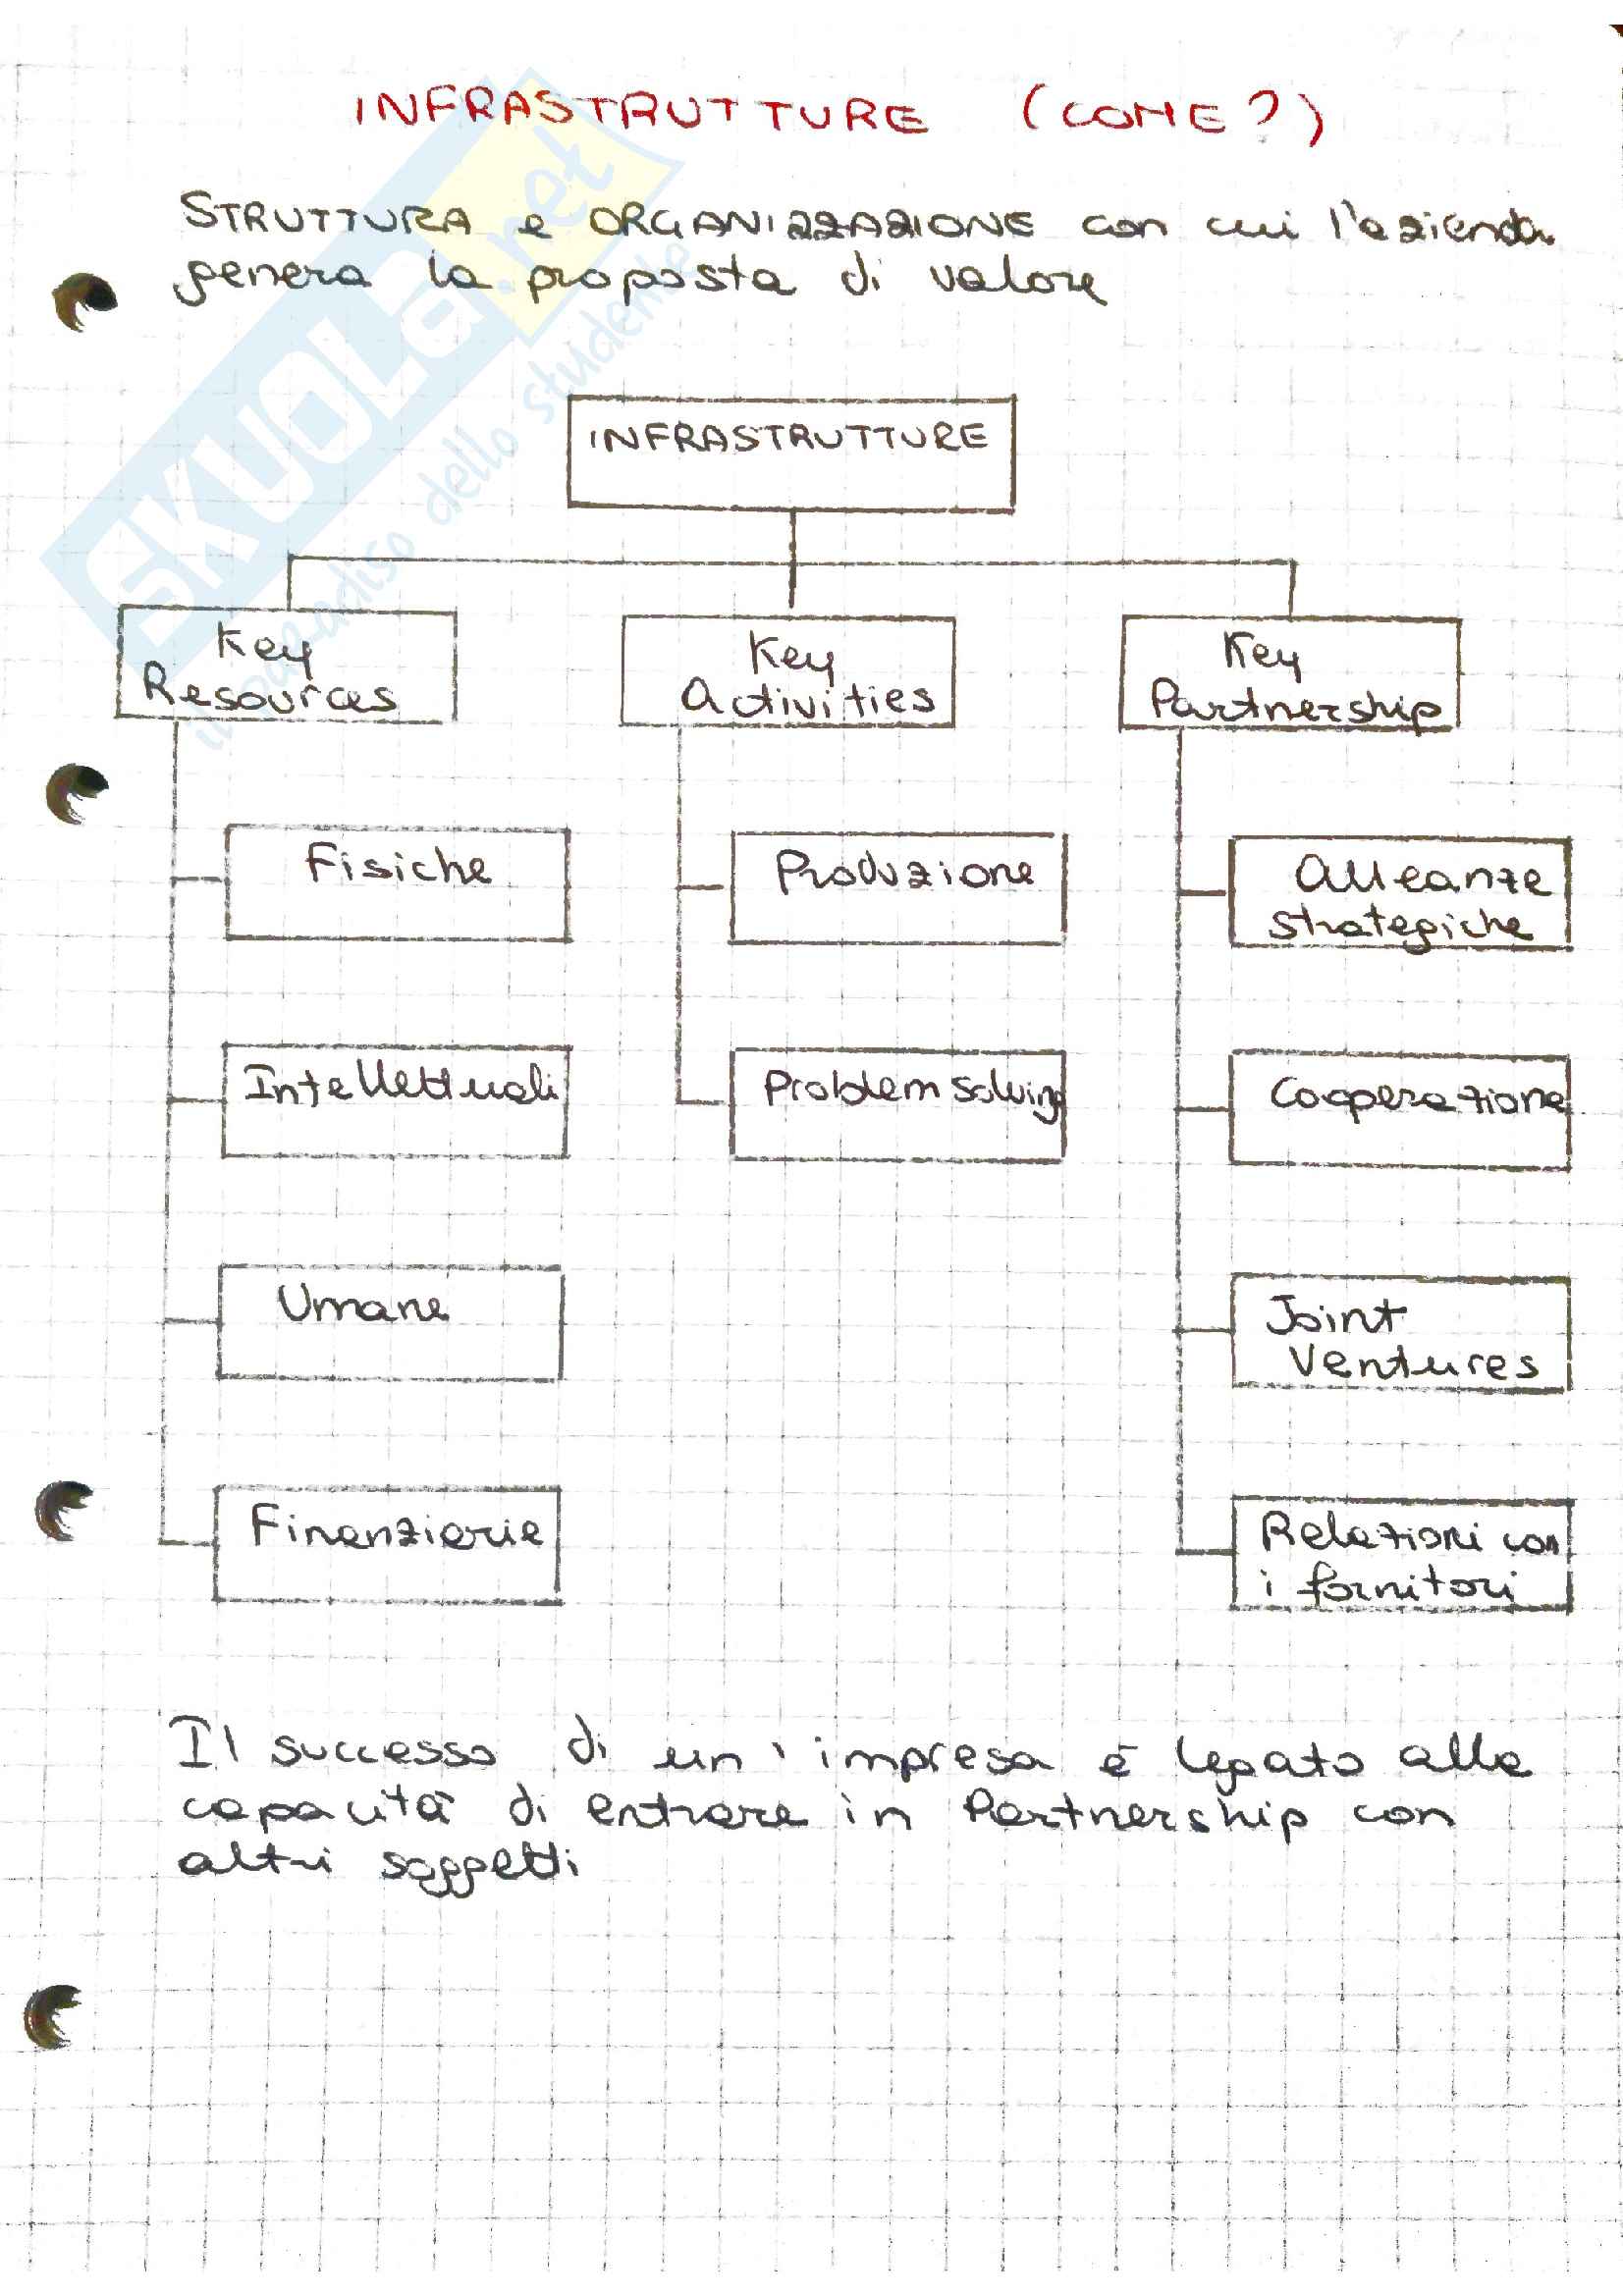 INFRASTRUTTURE (COME?)
STRUTTURA e ORGANIZZAZIONE con cui l'azienda
genera la proposta di valore
INFRASTRUTTURE
Key
Resources
Key
Activities
Key
Partnership
Fisiche
Produzione
Alleanze
strategiche
Intellettuali
Problem solving
Cooperazione
Umane
Joint
Ventures
Finanziarie
Relazioni con
i fornitori
Il successo di un'impresa è legato alla
capacità di entrare in Partnership con
altri soggetti
SKUOLA.net
il paradiso dello studente